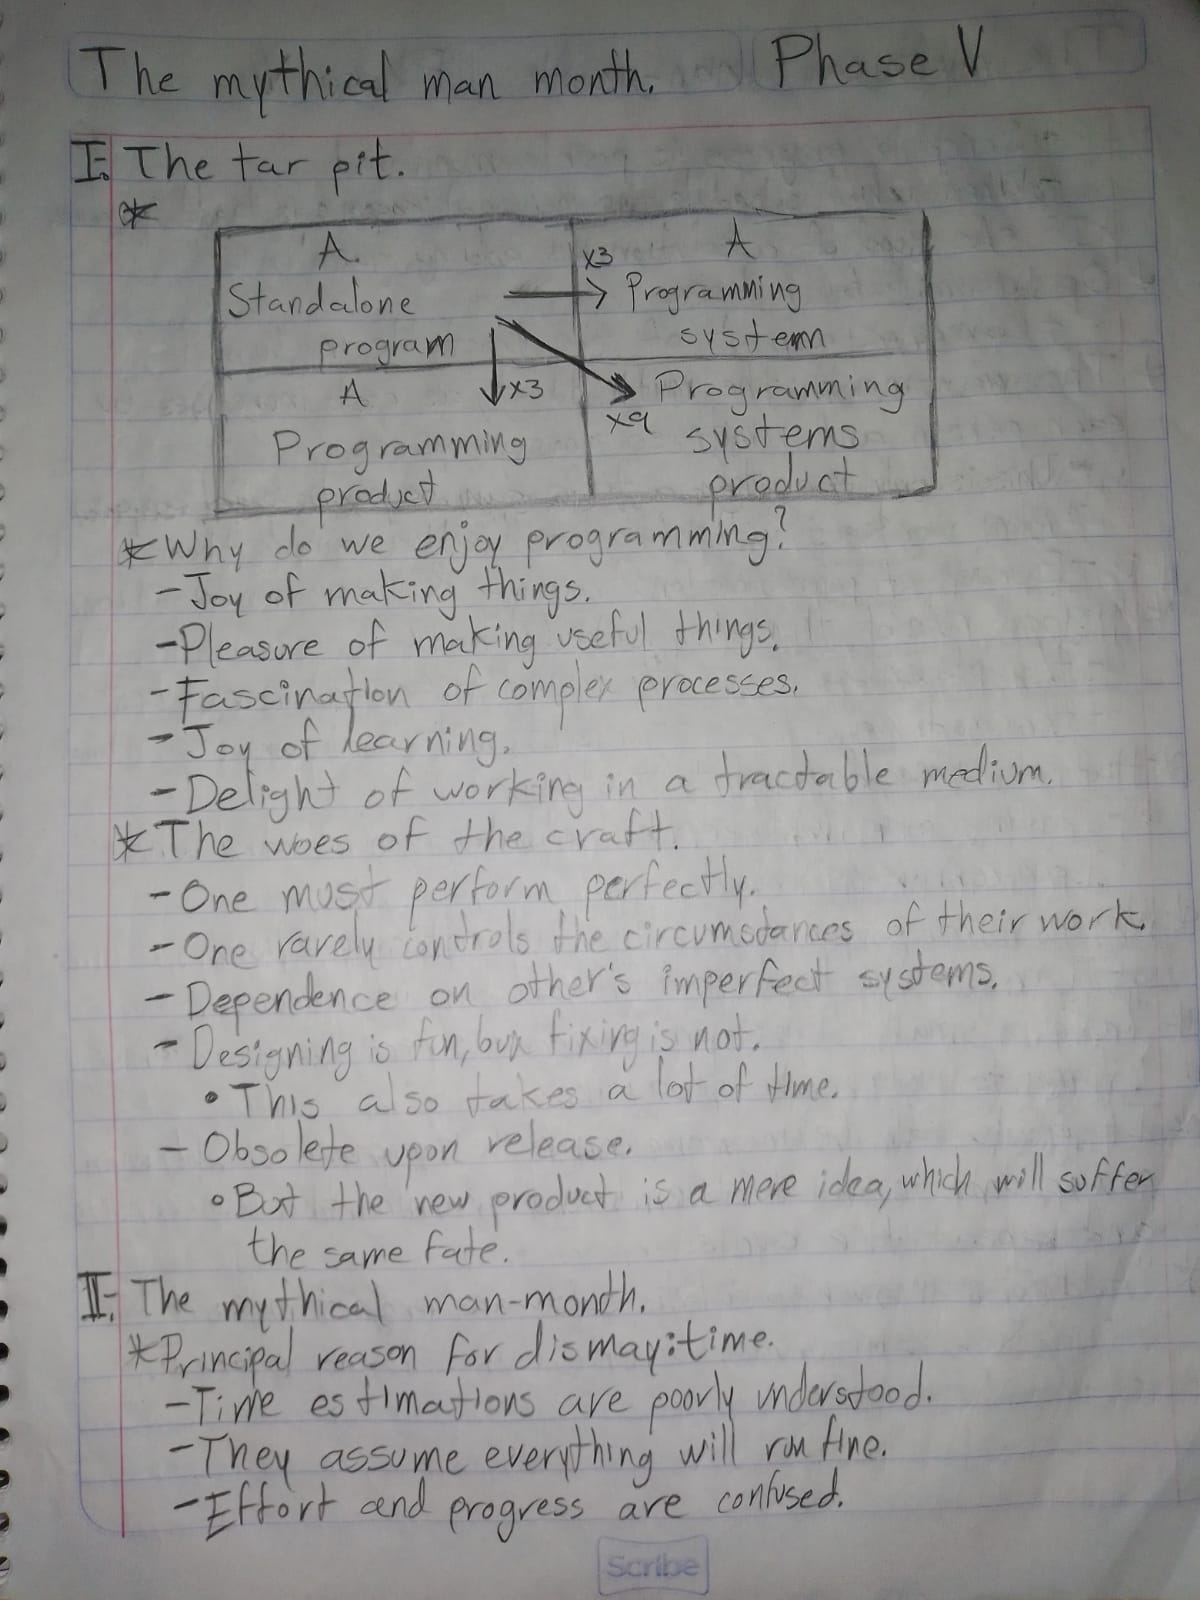 The mythical man month. Phase V
I. The tar pit.
*
A. A
x3
Standalone Programming
program system
A x3 Programming
x9
Programming systems
product product
* Why do we enjoy programming?
- Joy of making things.
- Pleasure of making useful things.
- Fascination of complex processes.
- Joy of learning.
- Delight of working in a tractable medium.
* The woes of the craft.
- One must perform perfectly.
- One rarely controls the circumstances of their work.
- Dependence on other's imperfect systems.
- Designing is fun, bug fixing is not.
• This also takes a lot of time.
- Obsolete upon release.
• But the new product is a mere idea, which will suffer
the same fate.
II. The mythical man-month.
* Principal reason for dismay: time.
- Time estimations are poorly understood.
- They assume everything will run fine.
- Effort and progress are confused.
Scribe